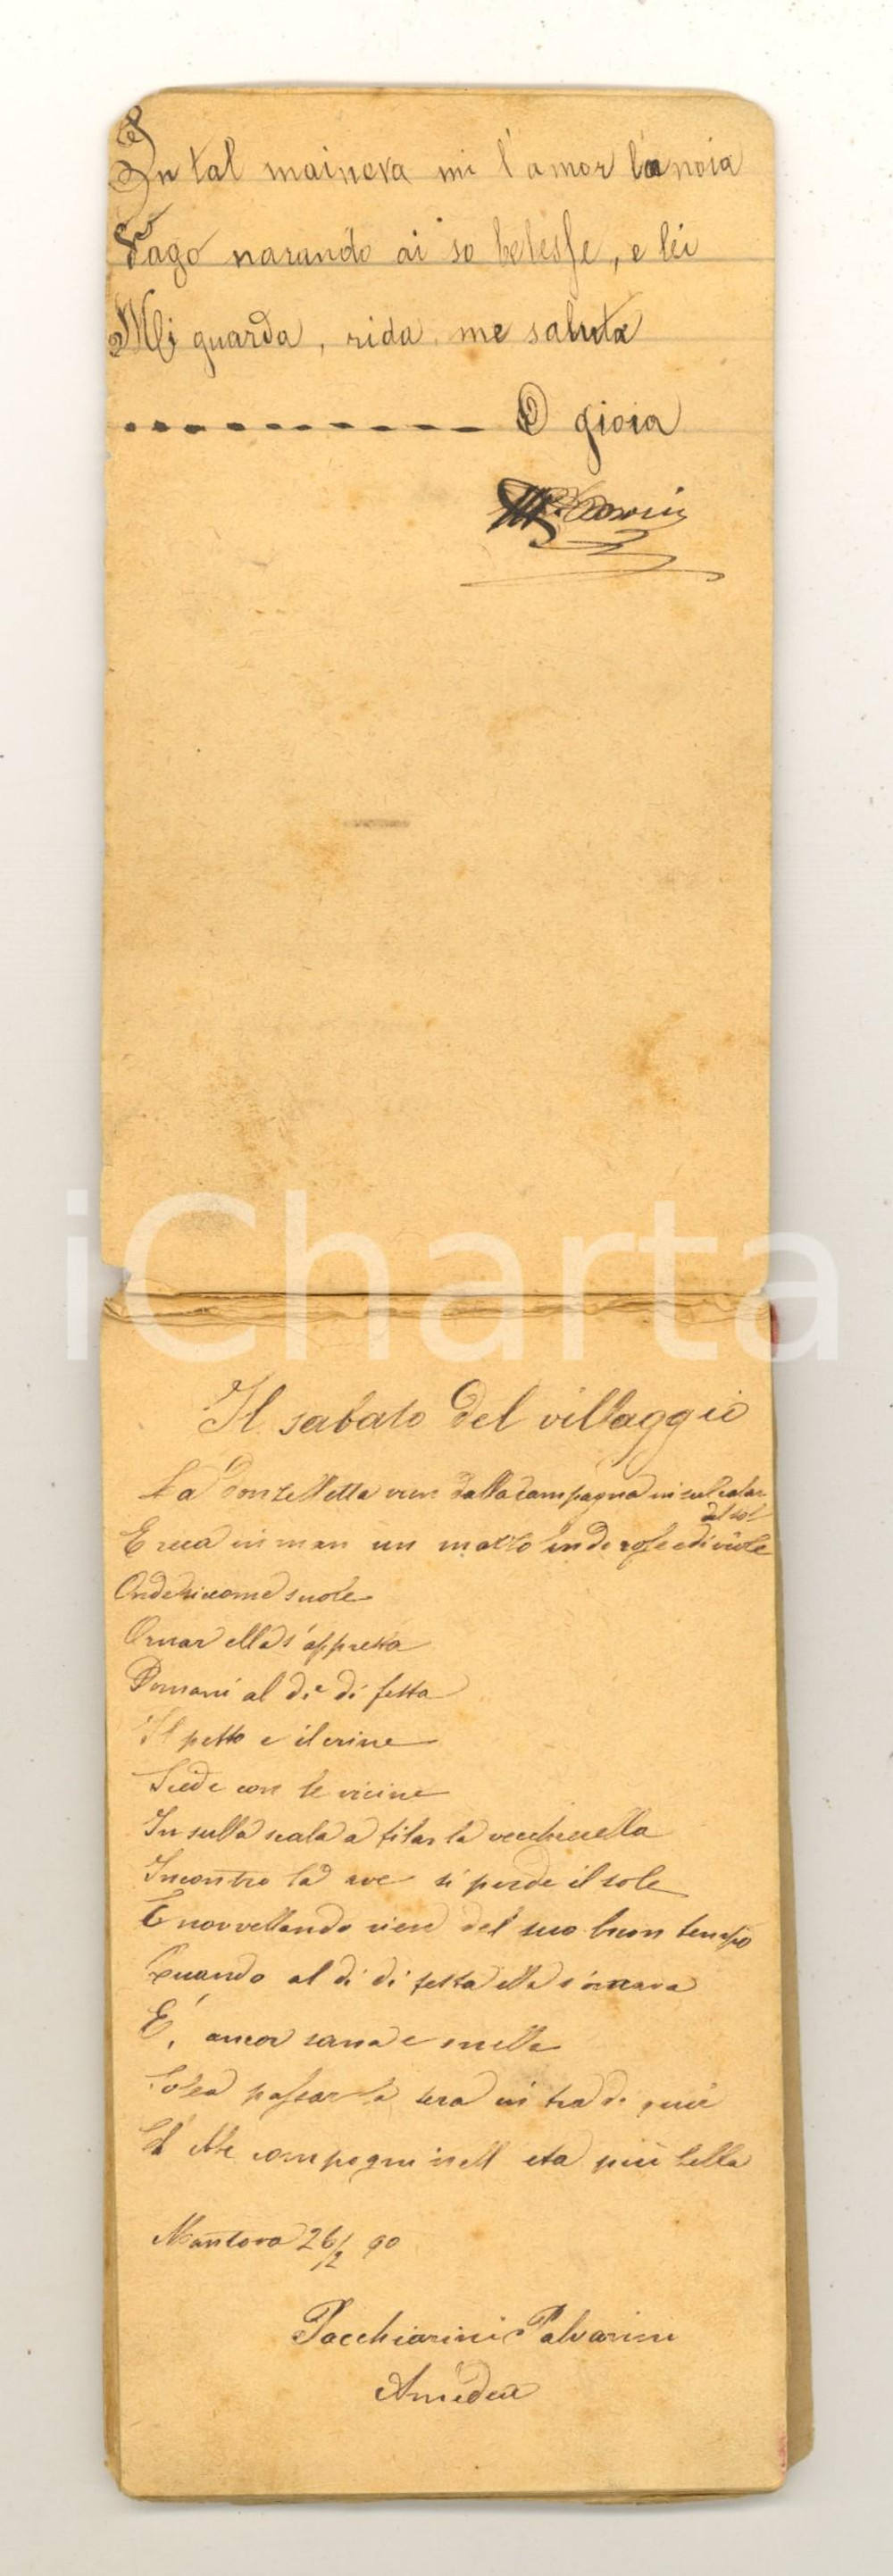 In tal mainera mi l'amor la noia
Vago narando ai so belesse, e lei
Mi guarda, rida, me saluta
O gioia
iCharta
Il sabato del villaggio
La donzelletta vien dalla campagna in sul calar
del sol
E reca in man un mazzo in di rose e di viole
Onde siccome suole
Ornar ella s'appresta
Domani al die di festa
Il petto e il crine
Siede con le vicine
In sulla scala a filar la vecchierella
Incontro là ove si perde il sole
E novvellando vien del suo buon tempo
Quando al di di festa ella s'ornava
E, ancor sana e snella
Solea passar la sera in tra di quei
Ch' Ebe compagni nell età più bella
Mantova 26/2 90
Pacchiarini Palvarini
Amedea